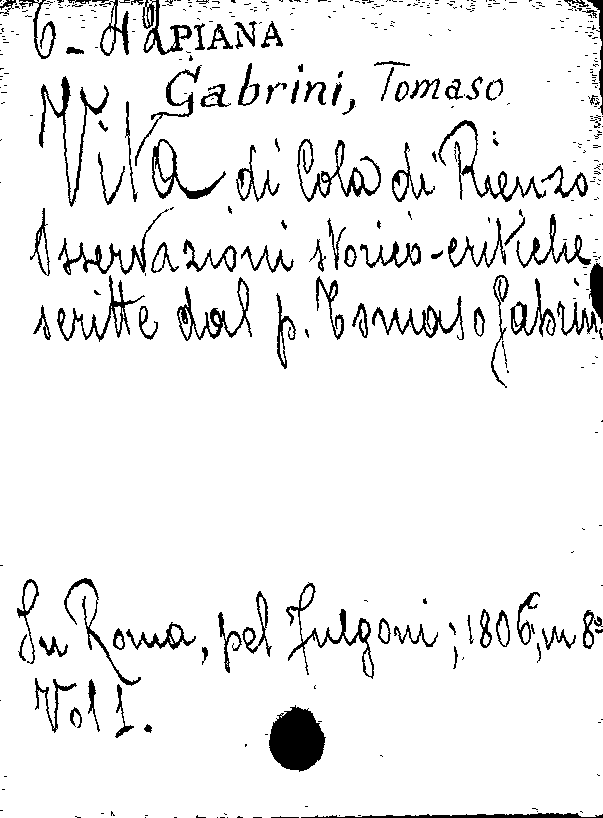 6-42 PIANA
Gabrini, Tomaso
Vita di Cola di Rienzo
Osservazioni storico-critiche
scritte dal p. Tomaso Gabrini
In Roma, pel Fulgoni; 1806, in 8º
Vol I.